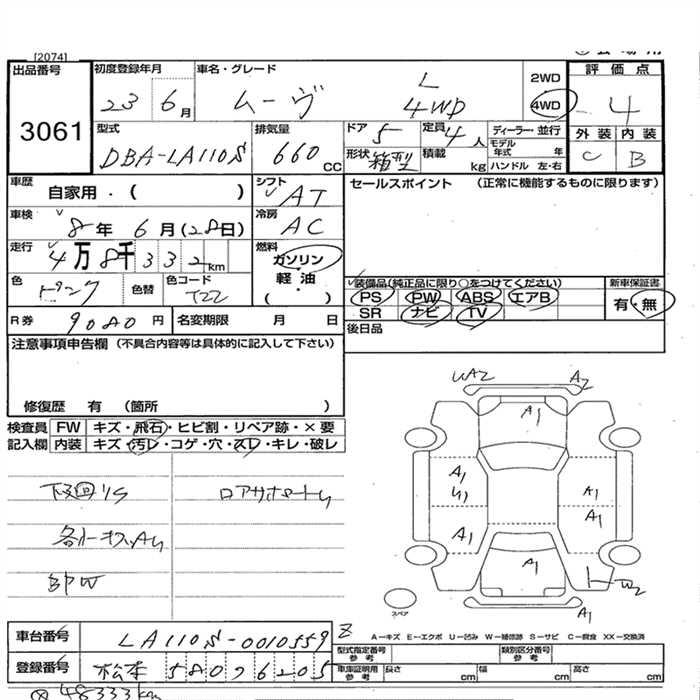 [2074]
出品番号
3061
初度登録年月
23 6月
車名・グレード
ムーヴ
L
4WD
2WD
4WD
評価点
4
外装 内装
C B
型式
DBA-LA110S
排気量
660 CC
ドア
5
定員
4人
ディーラー・並行
モデル年式 年
形状 箱型
積載 kg
ハンドル 左・右
車歴
自家用・( )
シフト
AT
セールスポイント (正常に機能するものに限ります)
車検
8年 6月(28日)
冷房
AC
走行
4万8千332km
燃料
ガソリン
・
軽油・
( )
色
色替
色コード
T22
装備品(純正品に限り○をつけてください)
PS PW ABS エアB
SR ナビ TV
新車保証書
有・無
R券 9080円
名変期限 月 日
後日品
注意事項申告欄(不具合内容等は具体的に記入して下さい)
修復歴 有 (箇所 )
検査員記入欄
FW キズ・飛石・ヒビ割・リペア跡・×要
内装 キズ・汚レ・コゲ・穴・スレ・キレ・破レ
A2
A1
A1
A1
A1
A1
A1
A1
A1
W2
スペア
A1
A―キズ E―エクボ U―凹み W―補修跡 S―サビ C―腐食 XX―交換済
車台番号
LA110S-0010559
登録番号
松本 580 76205
型式指定番号 参考
類別区分番号 参考
車庫証明用 参考
長さ cm
幅 cm
高さ cm
48333km